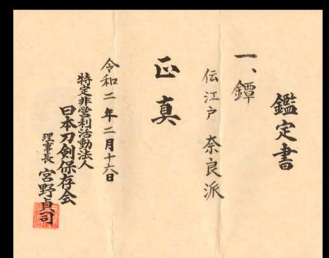 鑑定書
一、鐔
伝江戸 奈良派
正真
令和二年二月十六日
特定非営利活動法人
日本刀剣保存会
理事長 宮野貞司